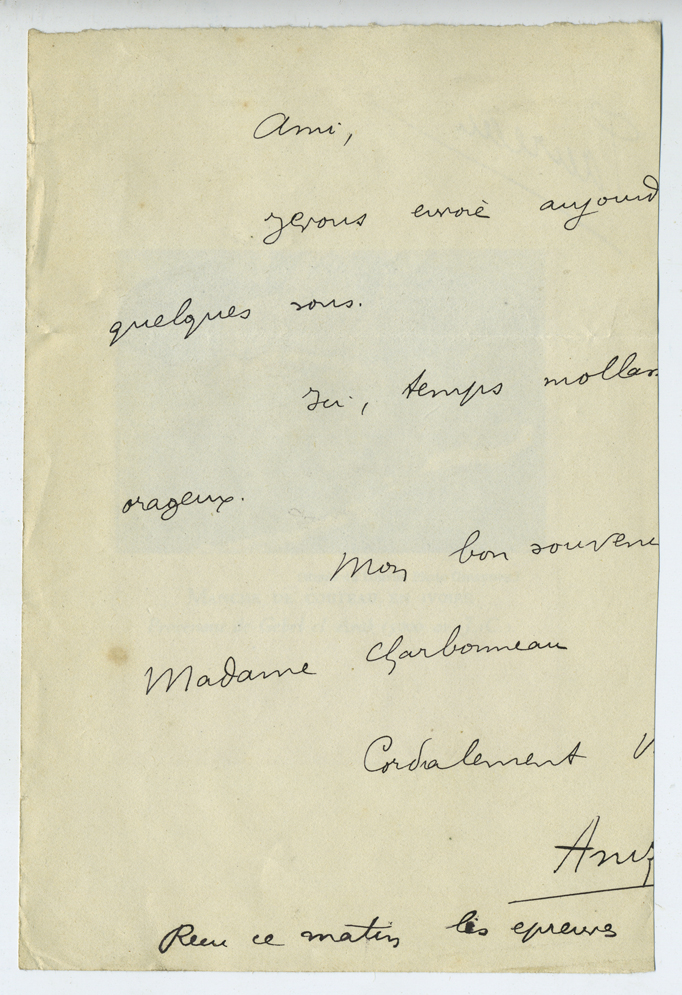 Ami,
Je vous envoie aujourd
quelques sous.
Ici, temps mollas
orageux.
Mon bon souveni
Madame Charbonneau
Cordialement V
Reçu ce matin les epreuves